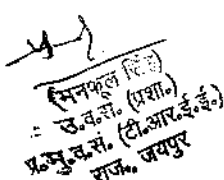 (मनफूल सिंह)
उ.व.सं. (प्रशा.)
प्र.मु.व.सं. (टी.आर.ई.ई.)
राज., जयपुर